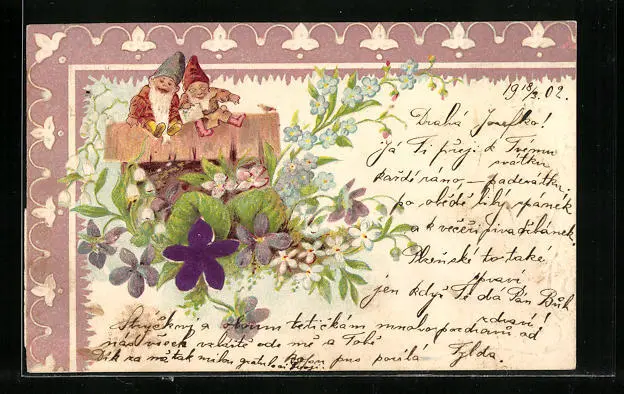 19 18/3 02.
Drahá Josefko!
Já Ti přeji k Tvému
svátku
každé ráno – padesátku.
po obědě libý spánek
a k večeři piva džbánek.
Plzeňské to také
spraví
jen když Tě dá Pán Bůh
zdraví!
Strýčkovi a oboum tetičkám mnoho pozdravů od
nás všech zvláště ode mě a Tobě
Dík za než tak milou gratulaci
pro posílá Sylda.